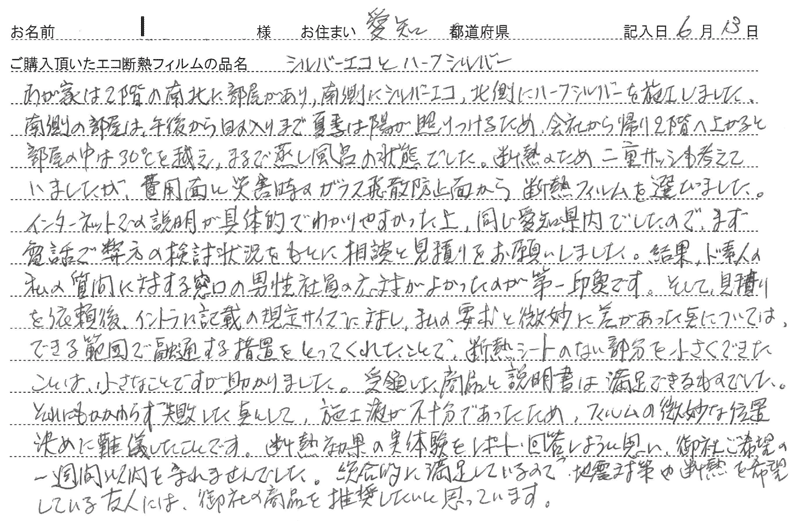 お名前 様 お住まい 愛知 都道府県 記入日 6 月 13 日
ご購入頂いたエコ断熱フィルムの品名 シルバーエコとハーフシルバー
わが家は2階の南北に部屋があり、南側にシルバーエコ、北側にハーフシルバーを施工しました。
南側の部屋は、午後から日の入りまで夏季は陽が照りつけるため、会社から帰り2階へ上がると
部屋の中は30℃を越え、まるで蒸し風呂の状態でした。断熱のため二重サッシも考えて
いましたが、費用面と災害時のガラス飛散防止面から断熱フィルムを選びました。
インターネットでの説明が具体的でわかりやすかった上、同じ愛知県内でしたので、まず
電話で弊方の検討状況をもとに相談と見積りをお願いしました。結果、ド素人の
私の質問に対する窓口の男性社員の応対がよかったのが第一印象です。そして、見積り
を依頼後、イントラに記載の規定サイズに対し、私の要求と微妙に差があった点については、
できる範囲で融通する措置をとってくれたことで、断熱シートのない部分を小さくできた
ことは、小さなことですが助かりました。受領した商品と説明書は満足できるものでした。
それにもかかわらず失敗した点として、施工液が不十分であったため、フィルムの微妙な位置
決めに難儀したことです。断熱効果の実体験をレポート回答しようと思い、御社ご希望の
一週間以内を守れませんでした。総合的に満足しているので、地震対策や断熱を希望
している友人には、御社の商品を推奨したいと思っています。